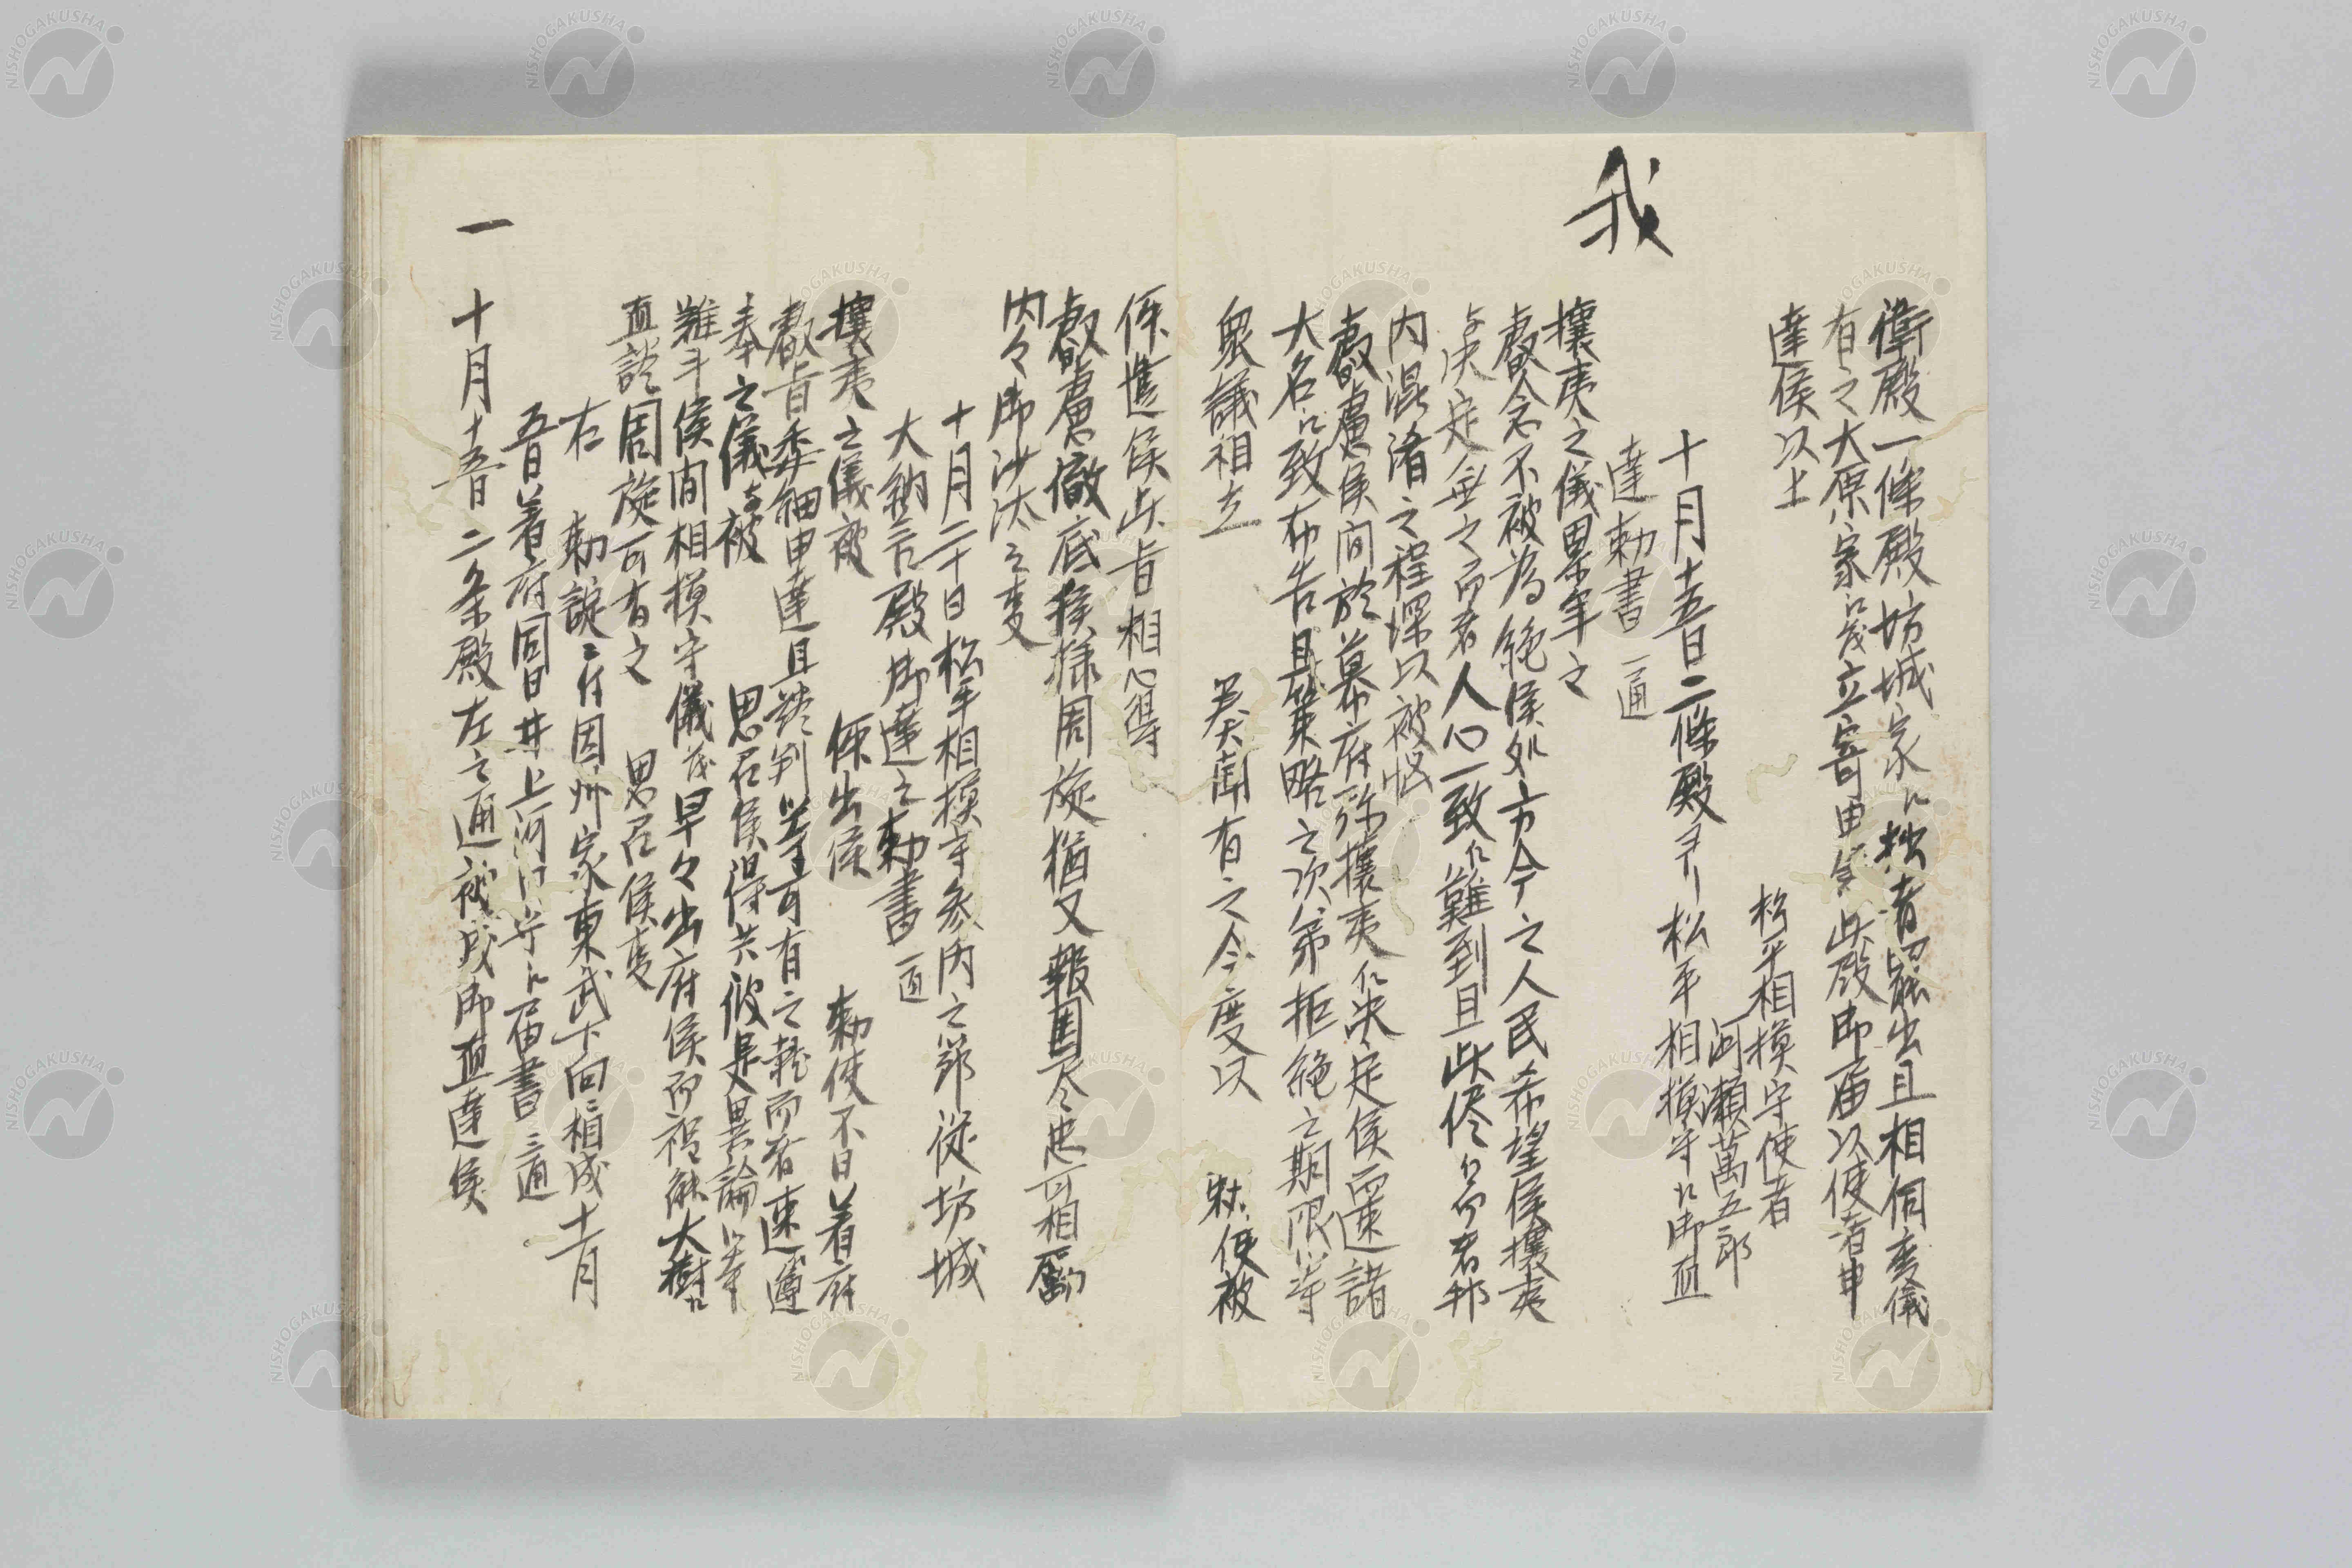 衛殿一條殿坊城家江拙者罷出且相伺委儀
有之大原家江茂立寄申候此段御届以使者申
達候以上
松平相模守使者
河瀬萬五郎
我
十月十五日二條殿ヨリ松平相模守江御直
達勅書一通
攘夷之儀累年之
叡念不被為絶候処方今之人民希望候攘夷
与決定無之而者人心一致江難到且此侭ニ而者邦
内混淆之程深以被悩
叡慮候間於幕府弥攘夷江決定候而速諸
大名江致布告且策略之次第拒絶之期限等
衆議相立 奏聞有之今度以 勅使被
仰進候此旨相心得
叡慮徹底候様周旋猶又報国尽忠可相励
内々御沙汰之事
十月二十日松平相模守参内之節従坊城
大納言殿御達之勅書一通
攘夷之儀被 仰出候 勅使不日着府
叡旨委細申達且談判等可有之就而者速遵
奉之儀与被 思召候得共彼是異論等
難斗候間相模守儀茂早々出府候而得大樹江
直談周旋可有之 思召候事
右 勅諚ニ付因州家東武下向ニ相成十一月
五日着府同日井上河内守江届書三通
一 十月十五日二条殿左之通被成御直達候